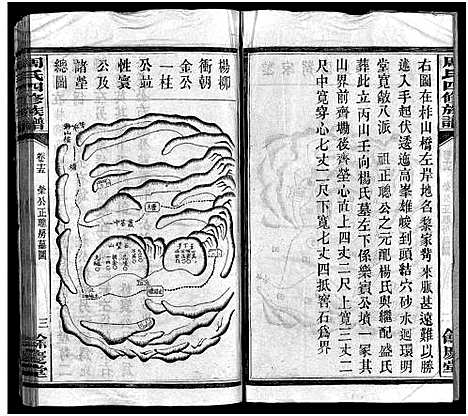 周氏四修族譜
右圖在柞山橋左岸地名黎家灣來脈甚遠難以勝
述入手起伏逶迤高峯雄峻到頭結穴砂水迴環明
堂寬敞八派 祖正聰公之元配楊氏與繼配盛氏
葬此立丙山壬向楊氏墓左下係樂賓公墳一冢其
山界前齊塴後齊塋心直上四丈二尺上寬三丈二
尺中寬穿心七丈二尺下寬七丈四抵窖石為界
餘慶堂
楊柳
衝朝
一柱
性寰
公及
金公
公並
諸塋
總圖
周氏四修族譜
卷十五
公正聰房墓圖
三
餘慶堂